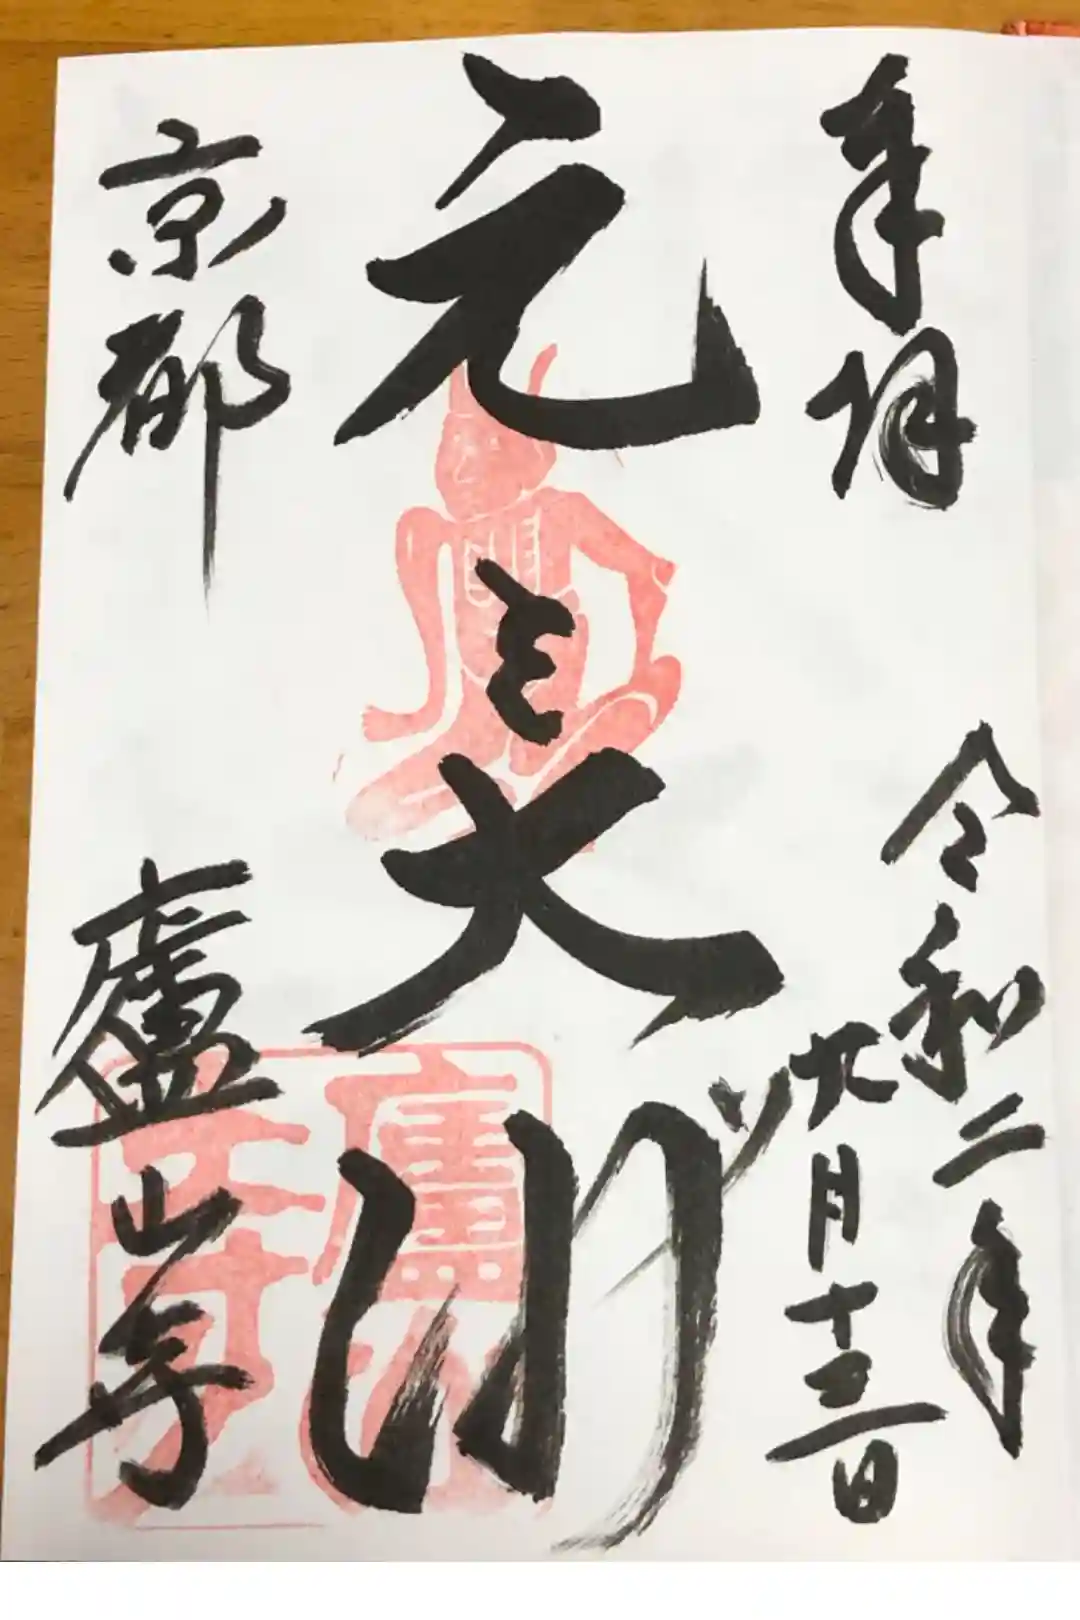 奉拝
令和二年
九月十三日
元三大師
京都
廬山寺
廬山
天台寺